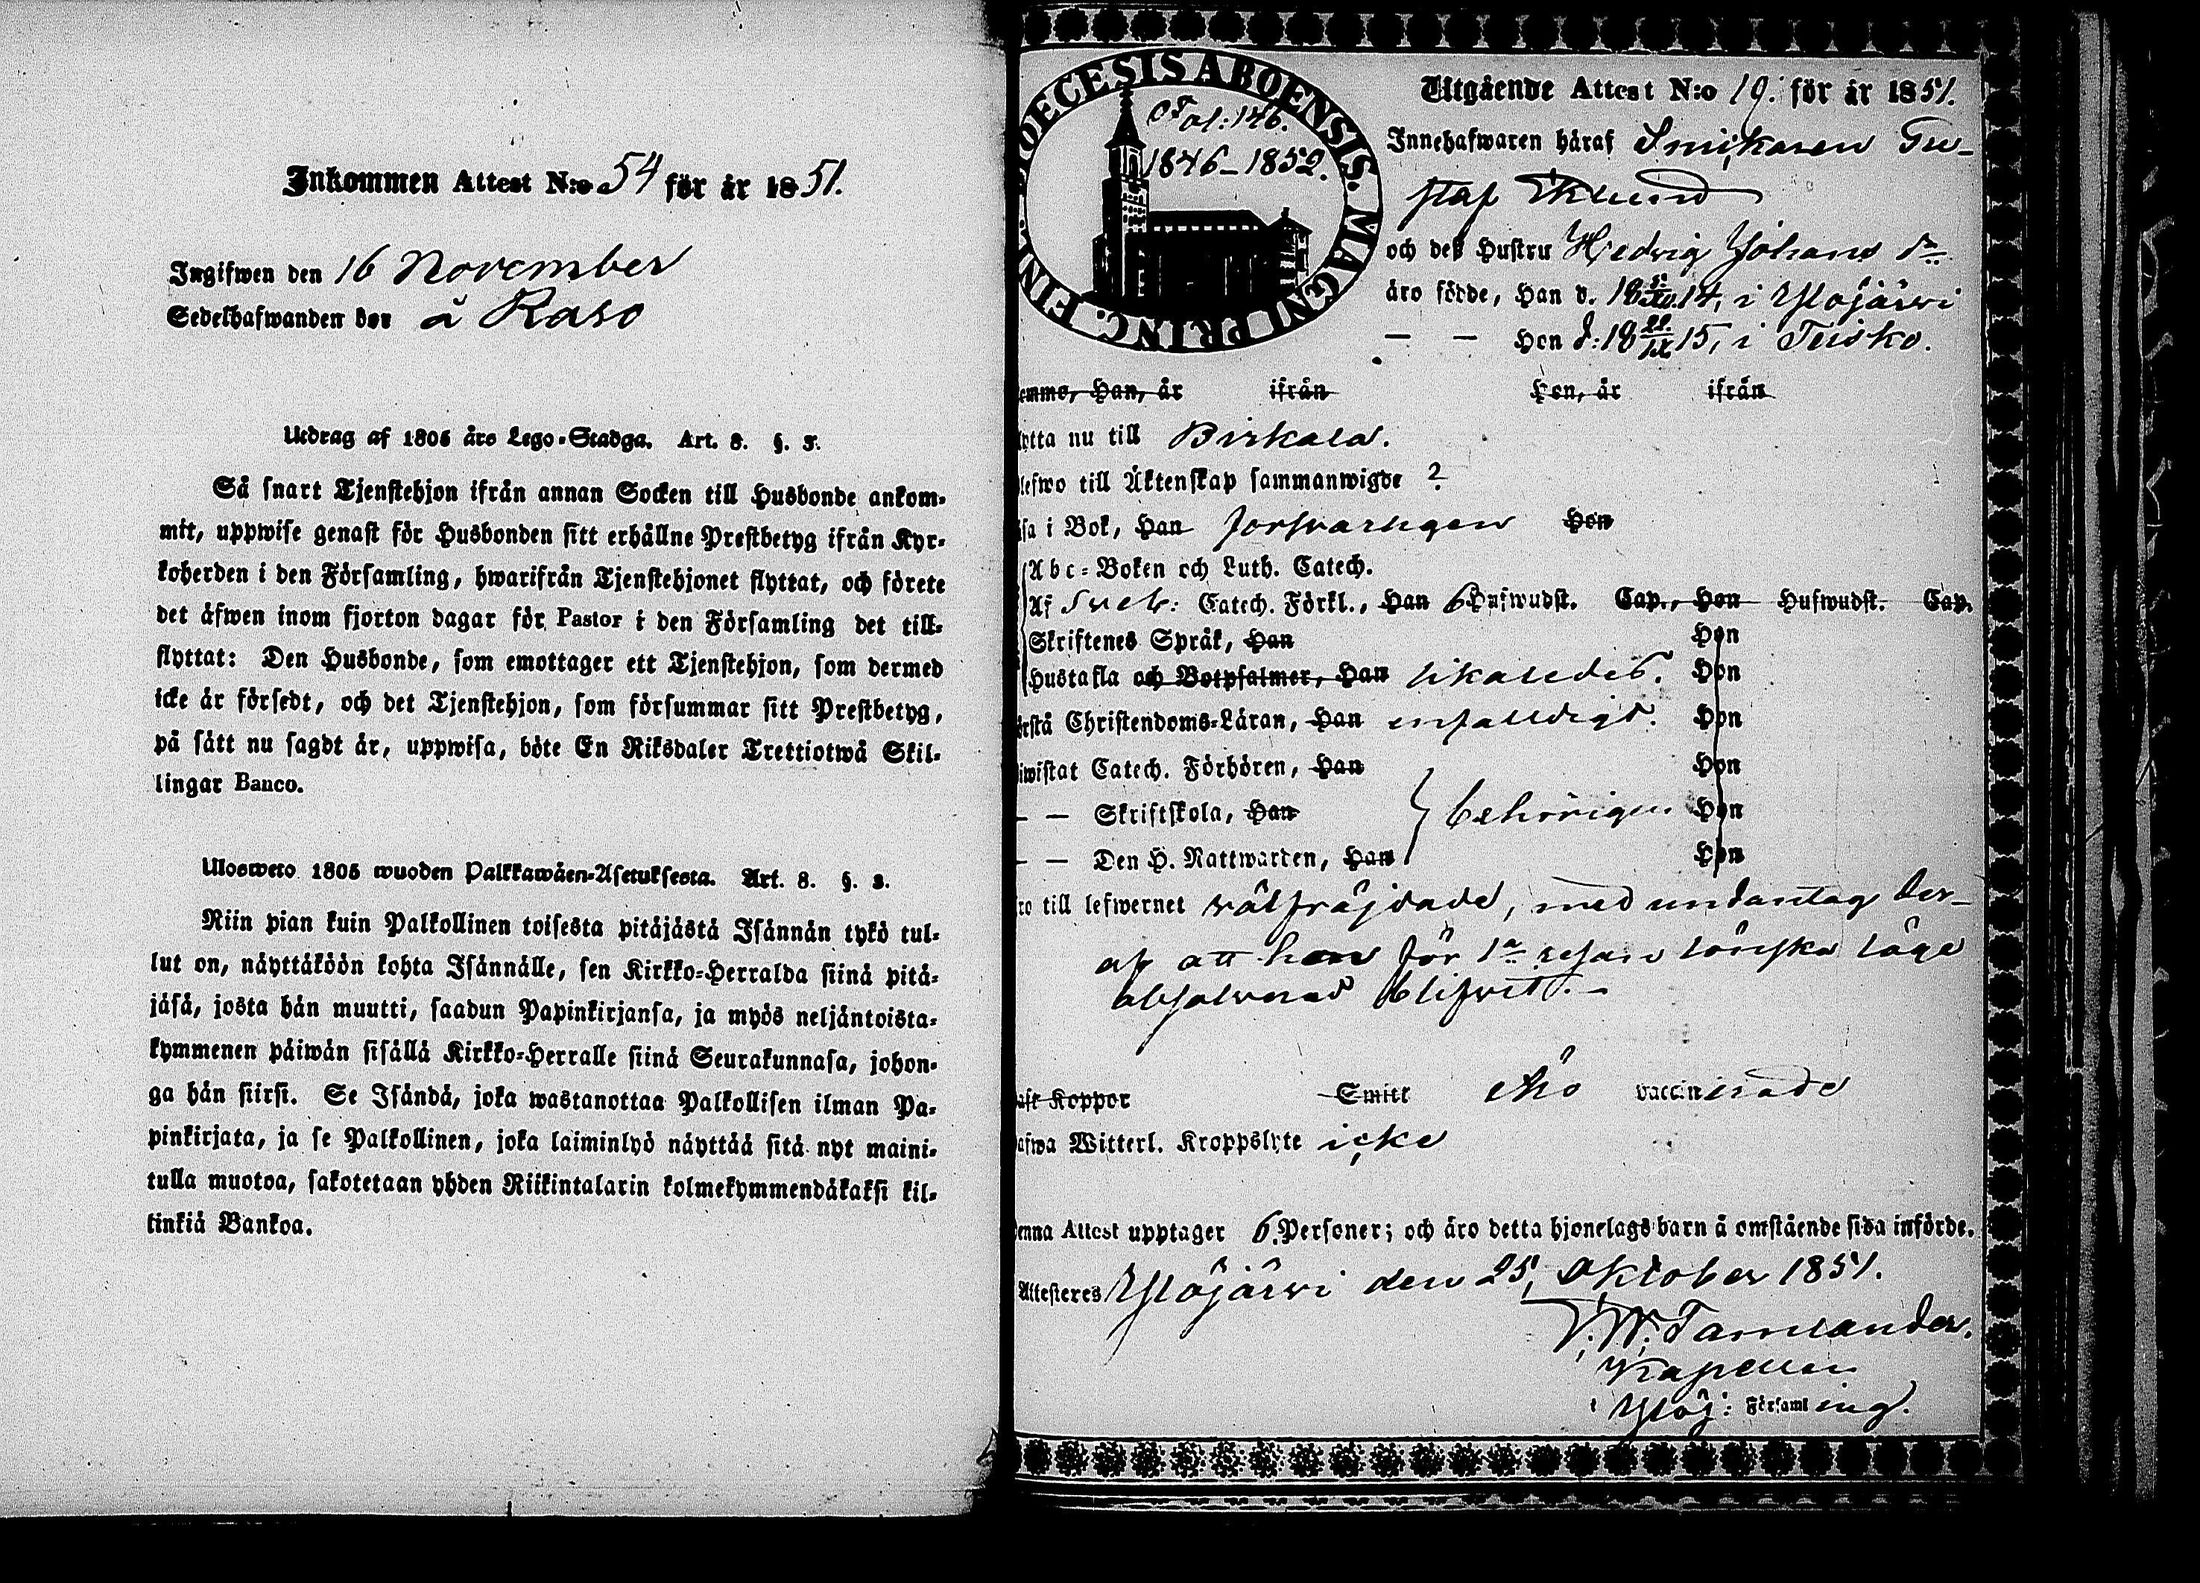 Inkommen Attest N:o 54 för år 1851.
Ingifwen den 16 November
Sedelhafwanden bor å Raso
Utdrag af 1805 års Lego-Stadga. Art. 8. §. 3.
Så snart Tjenstehjon ifrån annan Socken till Husbonde ankom-
mit, uppwise genast för Husbonden sitt erhållne Prestbetyg ifrån Kyr-
koherden i den Församling, hwarifrån Tjenstehjonet flyttat, och förete
det äfwen inom fjorton dagar för Pastor i den Församling det till-
flyttat: Den Husbonde, som emottager ett Tjenstehjon, som dermed
icke är försedt, och det Tjenstehjon, som försummar sitt Prestbetyg,
på sätt nu sagdt är, uppwisa, böte En Riksdaler Trettiotwå Skil-
lingar Banco.
Ulosweto 1805 wuoden Palkkawäen-Asetuksesta. Art. 8. §. 3.
Niin pian kuin Palkollinen toisesta pitäjästä Isännän tykö tul-
lut on, näyttäköön kohta Isännälle, sen Kirkko-Herralda siinä pitä-
jäsä, josta hän muutti, saadun Papinkirjansa, ja myös neljäntoista-
kymmenen päiwän sisällä Kirkko-Herralle siinä Seurakunnasa, johon-
ga hän siirsi. Se Isändä, joka wastanottaa Palkollisen ilman Pa-
pinkirjata, ja se Palkollinen, joka laiminlyö näyttää sitä nyt maini-
tulla muotoa, sakotetaan yhden Riikintalarin kolmekymmendäkaksi kil-
linkiä Bankoa.
DIOECESIS ABOENSIS. MAGNI PRINC. FINL.
Fol: 146.
1846-1852.
Utgående Attest N:o 19. för år 1851.
Innehafwaren häraf Inhikaren Gu-
staf Eklund
och deß Hustru Hedvig Johans dr.
äro födde, Han d. 18 14, i Ylöjärvi
— — Hon d: 18 22/IX 15, i Teisko.
emmo, Han, år ifrån Hon, år ifrån
lytta nu till Birkala.
lefwo till Äktenskap sammanwigde ?
äsa i Bok, Han försvarligen Hon
Abc-Boken och Luth. Catech.
Af Sveb: Catech. Förkl., Han 6 Hufwudst. Cap., Hon Hufwudst. Cap.
Skriftenes Språk, Han Hon
Hustafla och Botpsalmer, Han likaledes. Hon
örstå Christendoms-Läran, Han enfaldigt. Hon
iwistat Catech. Förhören, Han Hon
— — Skriftskola, Han behörigen Hon
— — Den H. Nattwarden, Han Hon
ro till lefwernet välfräjdade, med undantag der-
af att hon för 1a resan lönska läge
absolverad blifvit.—
aft Koppor Smitt Äro vaccinerade
afwa Witterl. Kroppslyte icke
enna Attest upptager 6 Personer; och äro detta hjonelags barn å omstående sida införde.
Attesteres Ylöjärvi den 25, Oktober 1851.
V. W. Tamlander.
Kapellan
i Ylöj: Församling.